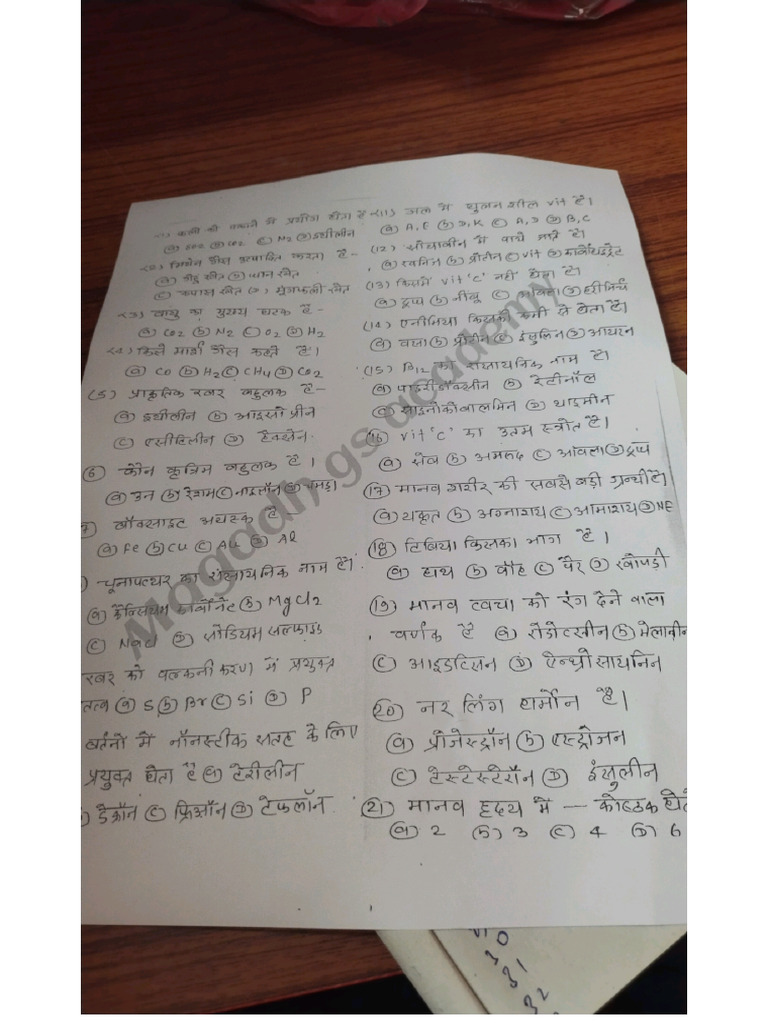 (1) फलों को पकाने में प्रयोग होता है -
(a) SO2 (b) CO2 (c) N2 (d) इथीलीन
खेत (b) धान खेत
(c) कपास खेत (d) मूंगफली खेत
(3) वायु का मुख्य घटक है -
(a) CO2 (b) N2 (c) O2 (d) H2
(4) किसे मार्श गैस कहते हैं।
(a) CO (b) H2 (c) CH4 (d) CO2
(5) प्राकृतिक रबर बहुलक है -
(a) इथीलीन (b) आइसोप्रीन
(c) एसीटिलीन (d) हैक्सेन
(6) कौन कृत्रिम बहुलक है।
(a) उन (b) रेशम (c) नाइलॉन (d) चमड़ा
7) बॉक्साइट अयस्क है
(a) Fe (b) Cu (c) Au (d) Al
) चूनापत्थर का रासायनिक नाम है।
(a) कैल्सियम कार्बोनेट (b) MgCl2
(c) NaCl (d) सोडियम सल्फाइड
रबर को वल्कनीकरण में प्रयुक्त
तत्व (a) S (b) Br (c) Si (d) P
बर्तनों में नॉनस्टीक सतह के लिए
प्रयुक्त होता है (a) टेरीलीन
) डेक्रॉन (c) फ्रिऑन (d) टेफलॉन
(11) जल में घुलनशील vit है।
(a) A, E (b) D, K (c) A, D (d) B, C
(12) सोयाबीन में पाये जाते है।
(a) खनिज (b) प्रोटीन (c) vit (d) कार्बोहाइड्रेट
(13) किसमें vit 'c' नहीं होता है।
(a) दूध (b) नींबू (c) आंवला (d) हरी मिर्च
(14) एनीमिया किसकी कमी से होता है।
(a) वसा (b) प्रोटीन (c) इंसुलिन (d) आयरन
(15) B12 का रासायनिक नाम है।
(a) पाइरीडॉक्सीन (b) रेटीनॉल
(c) साइनोकोबालमिन (d) थाइमीन
(16) vit 'c' का उतम स्त्रोत है।
(a) सेव (b) अमरूद (c) आंवला (d) दूध
(17) मानव शरीर की सबसे बड़ी ग्रन्थी है।
(a) यकृत (b) अग्नाशय (c) आमाशय (d) NE
(18) टिबिया किसका भाग है।
(a) हाथ (b) बाँह (c) पैर (d) खोपड़ी
(19) मानव त्वचा को रंग देने वाला
वर्णक है (a) रोडोप्सीन (b) मेलानीन
(c) आइडटिसन (d) ऐन्थ्रोसायनिन
(20) नर लिंग हार्मोन है।
(a) प्रोजेस्ट्रॉन (b) एस्ट्रोजन
(c) टेस्टेस्टेरॉन (d) इंसुलीन
(21) मानव हृदय में — कोष्ठक होते
(a) 2 (b) 3 (c) 4 (d) 6
Magadh gs academy
31
32